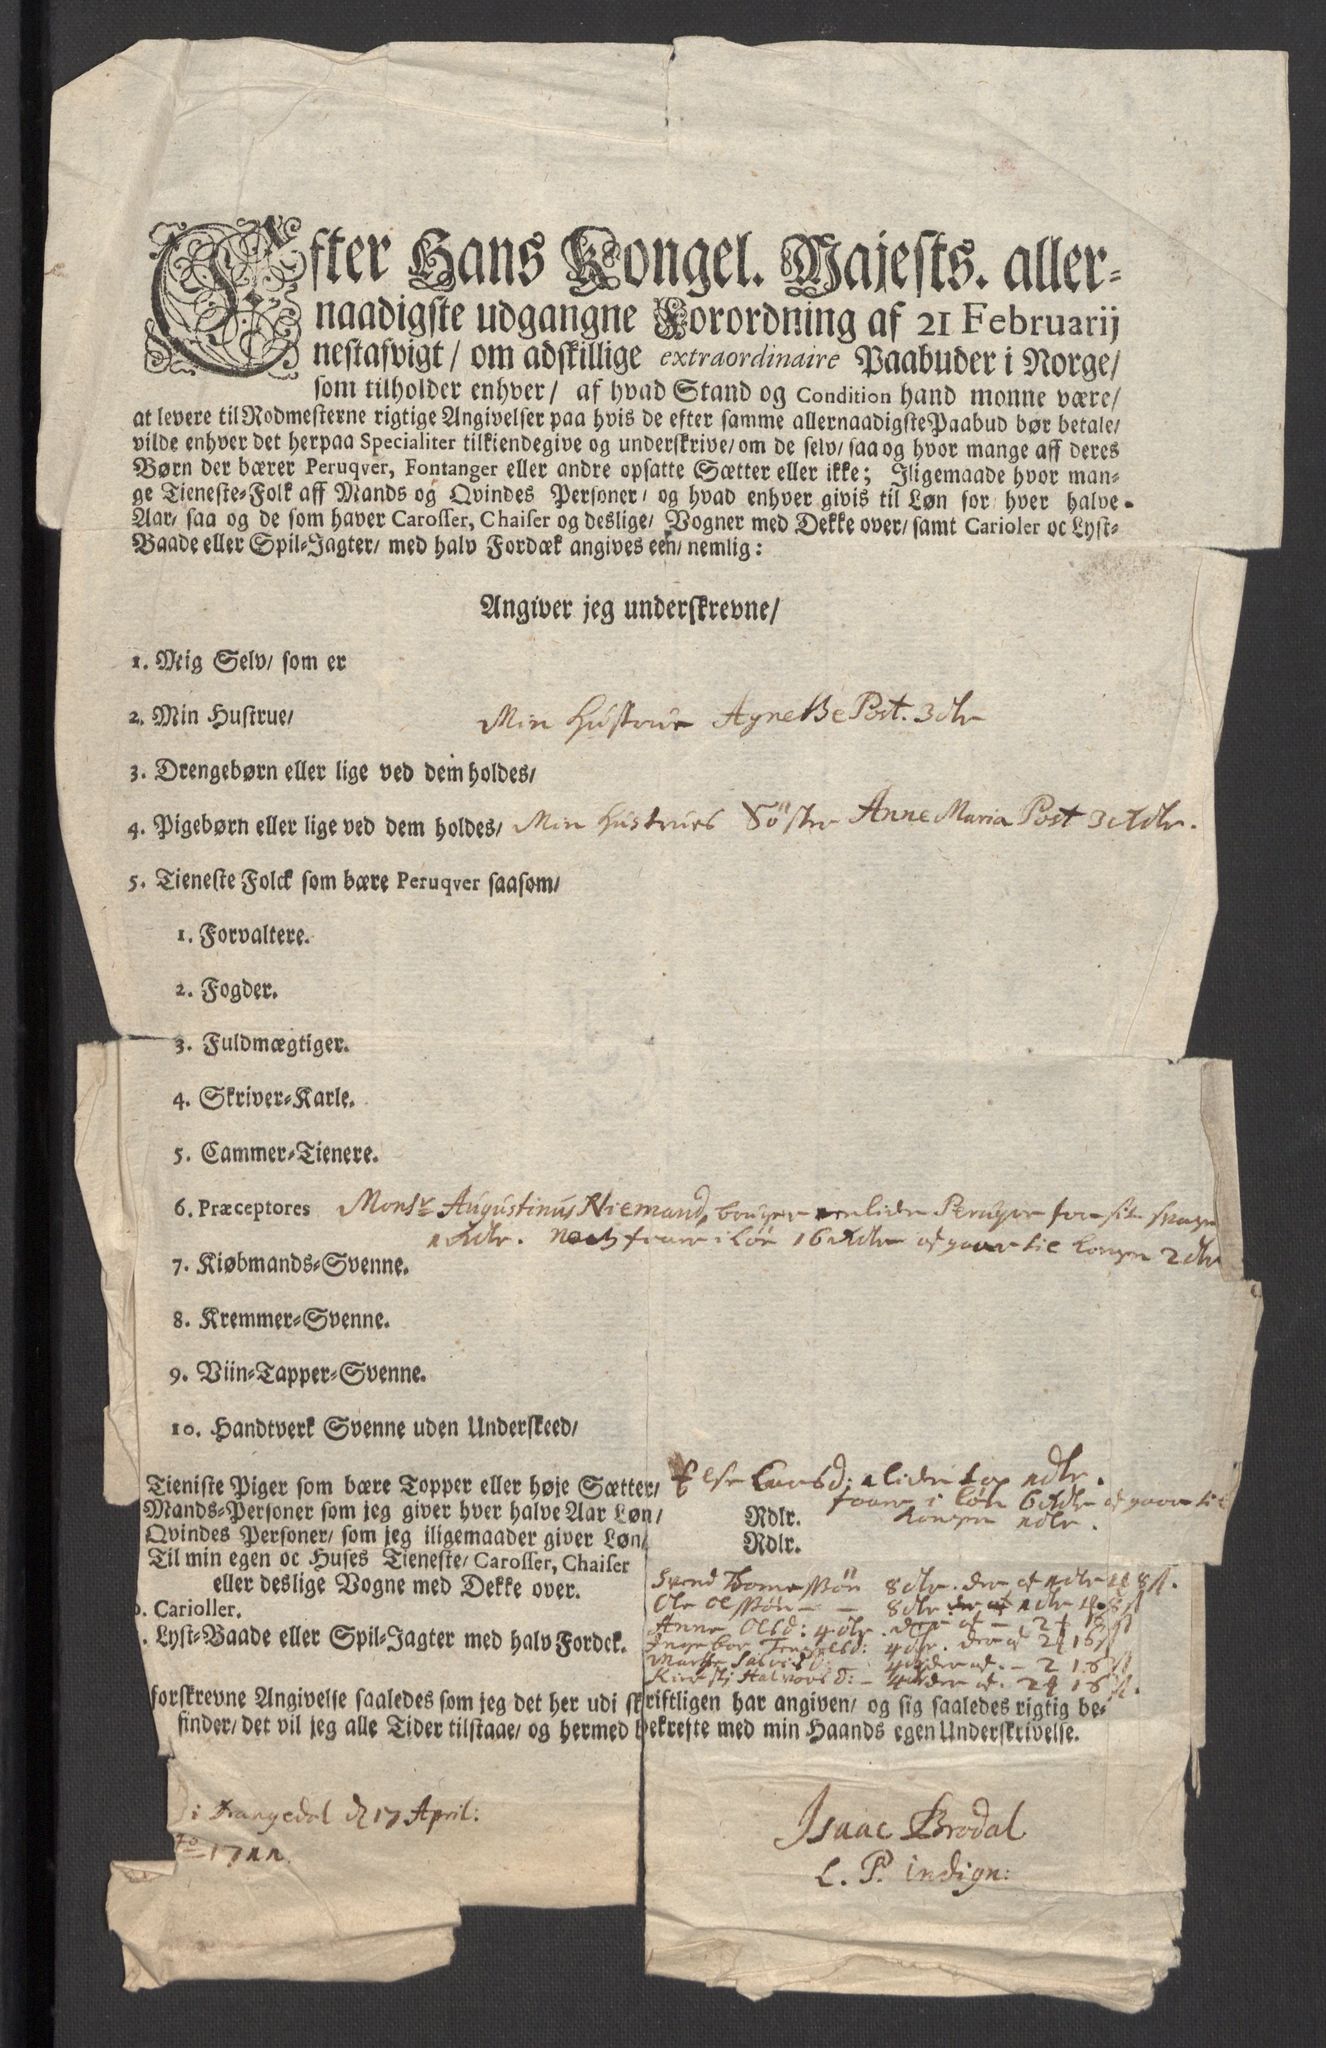 Efter Hans Kongel. Majests. aller-
naadigste udgangne Forordning af 21 Februarij
nestafvigt/ om adskillige extraordinaire Paabuder i Norge/
som tilholder enhver/ af hvad Stand og Condition hand monne være/
at levere til Rodmesterne rigtige Angivelser paa hvis de efter samme allernaadigste Paabud bør betale/
vilde enhver det herpaa Specialiter tilkiendegive og underskrive/ om de selv/ saa og hvor mange aff deres
Børn der bærer Peruqver, Fontanger eller andre opsatte Sætter eller ikke; Iligemaade hvor man-
ge Tieneste-Folk aff Mands og Qvindes Personer/ og hvad enhver givis til Løn for hver halve-
Aar/ saa og de som haver Carosser, Chaiser og deslige/ Vogner med Dekke over/ samt Carioler oc Lyst-
Baade eller Spil-Jagter/ med halv Fordæk angives een/ nemlig:
Angiver jeg underskrevne/
1. Mig Selv/ som er
2. Min Hustrue/ Min Hustrue Agnette Post. 3 dlr
3. Drengebørn eller lige ved dem holdes/
4. Pigebørn eller lige ved dem holdes/ Min Hustrues Söster Anne Maria Post 3 Rdlr.
5. Tieneste Folck som bære Peruqver saasom/
1. Forvaltere.
2. Fogder.
3. Fuldmægtiger.
4. Skriver-Karle.
5. Cammer-Tienere.
6. Præceptores Monsr Augustinus Niemand, bruger en liden Peruqve for sit
1 Rdlr. faaer i løn 16 Rdlr af gaar til Kongen 2 dlr
7. Kiøbmands-Svenne.
8. Kremmer-Svenne.
9. Viin-Tapper-Svenne.
10. Handtverk Svenne uden Underskeed/
Tieniste Piger som bære Topper eller høje Sætter/ Else Larsd: 1 liden top 1 dlr.
faaer i løn 6 Rdlr af gaar til
Mands-Personer som jeg giver hver halve Aar Løn/ Rdlr. Kongen 1 dlr.
Qvindes Personer/ som jeg iligemaader giver Løn/ Rdlr.
Til min egen oc Huses Tieneste/ Carosser, Chaiser
eller deslige Vogne med Dekke over. Svend 8 dlr. der af 1 dlr 8 s.
. Carioller. Ole 8 dlr der af 1 dlr 8 s
Anne Olsd: 4 dlr. der af - 2 16 s
. Lyst-Baade eller Spil-Jagter med halv Fordek. Ingebor 4 dlr. der af 2 16 s
Marthe 4 der af. - 2 16 s
Kirsti Halvorsd: - 4 der af. 2 16 s.
forskrevne Angivelse saaledes som jeg det her udi skriftligen har angiven/ og sig saaledes rigtig be-
finder/ det vil jeg alle Tider tilstaae/ og hermed bekrefte med min Haands egen Underskrivelse.
Drangedal d 17 April:
1711.
Isaac Brodal
L. P. indign: